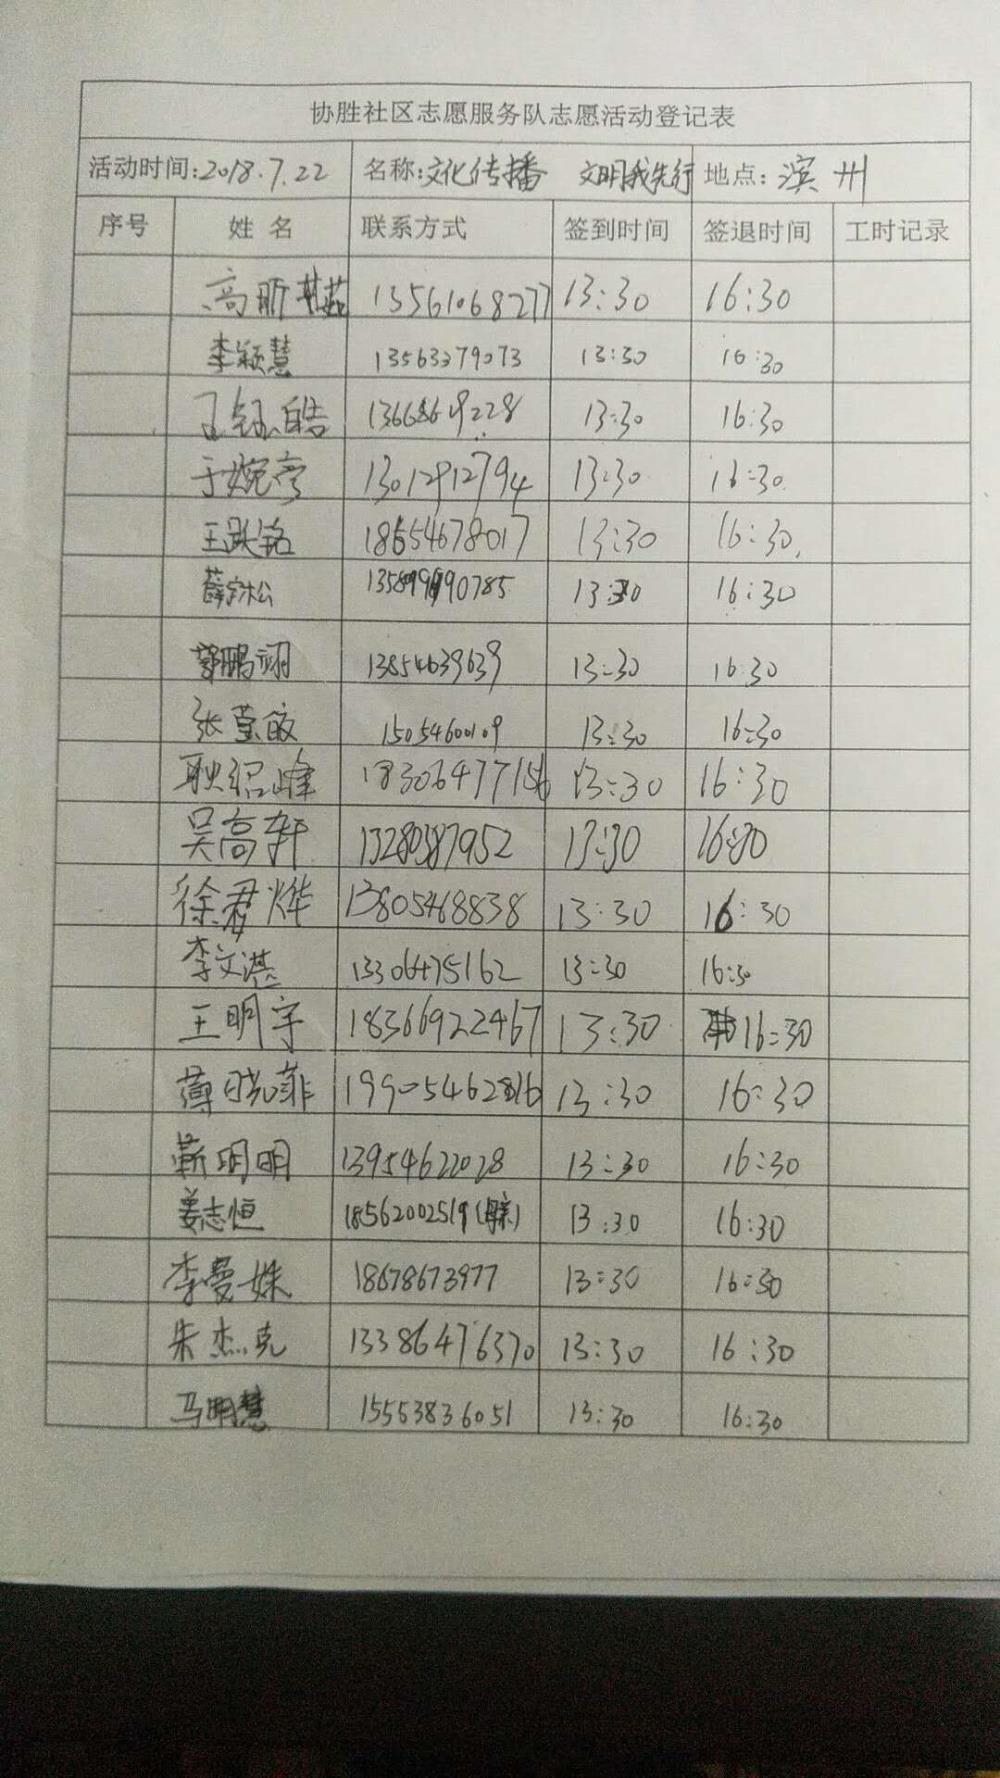 协胜社区志愿服务队志愿活动登记表
活动时间:2018.7.22 名称:文化传播 文明我先行 地点:滨州
序号 姓名 联系方式 签到时间 签退时间 工时记录
高昕 13561068277 13:30 16:30
李颖慧 13563379073 13:30 16:30
王钰皓 13668619228 13:30 16:30
于婉亭 13012912794 13:30 16:30
王跃铭 18654678017 13:30 16:30
薛宗松 13:30 16:30
郭鹏翊 13854639639 13:30 16:30
张莹皎 15054600109 13:30 16:30
耿绍峰 18306477156 13:30 16:30
吴高轩 13280387952 13:30 16:30
徐君烨 13805468838 13:30 16:30
李文湛 13306475162 13:30 16:30
王明宇 18366922467 13:30 16:30
薄晓菲 19905462816 13:30 16:30
靳明明 13954622028 13:30 16:30
姜志恒 18562002519(母亲) 13:30 16:30
李曼姝 18678673977 13:30 16:30
朱杰克 13386476370 13:30 16:30
马明慧 15553836051 13:30 16:30